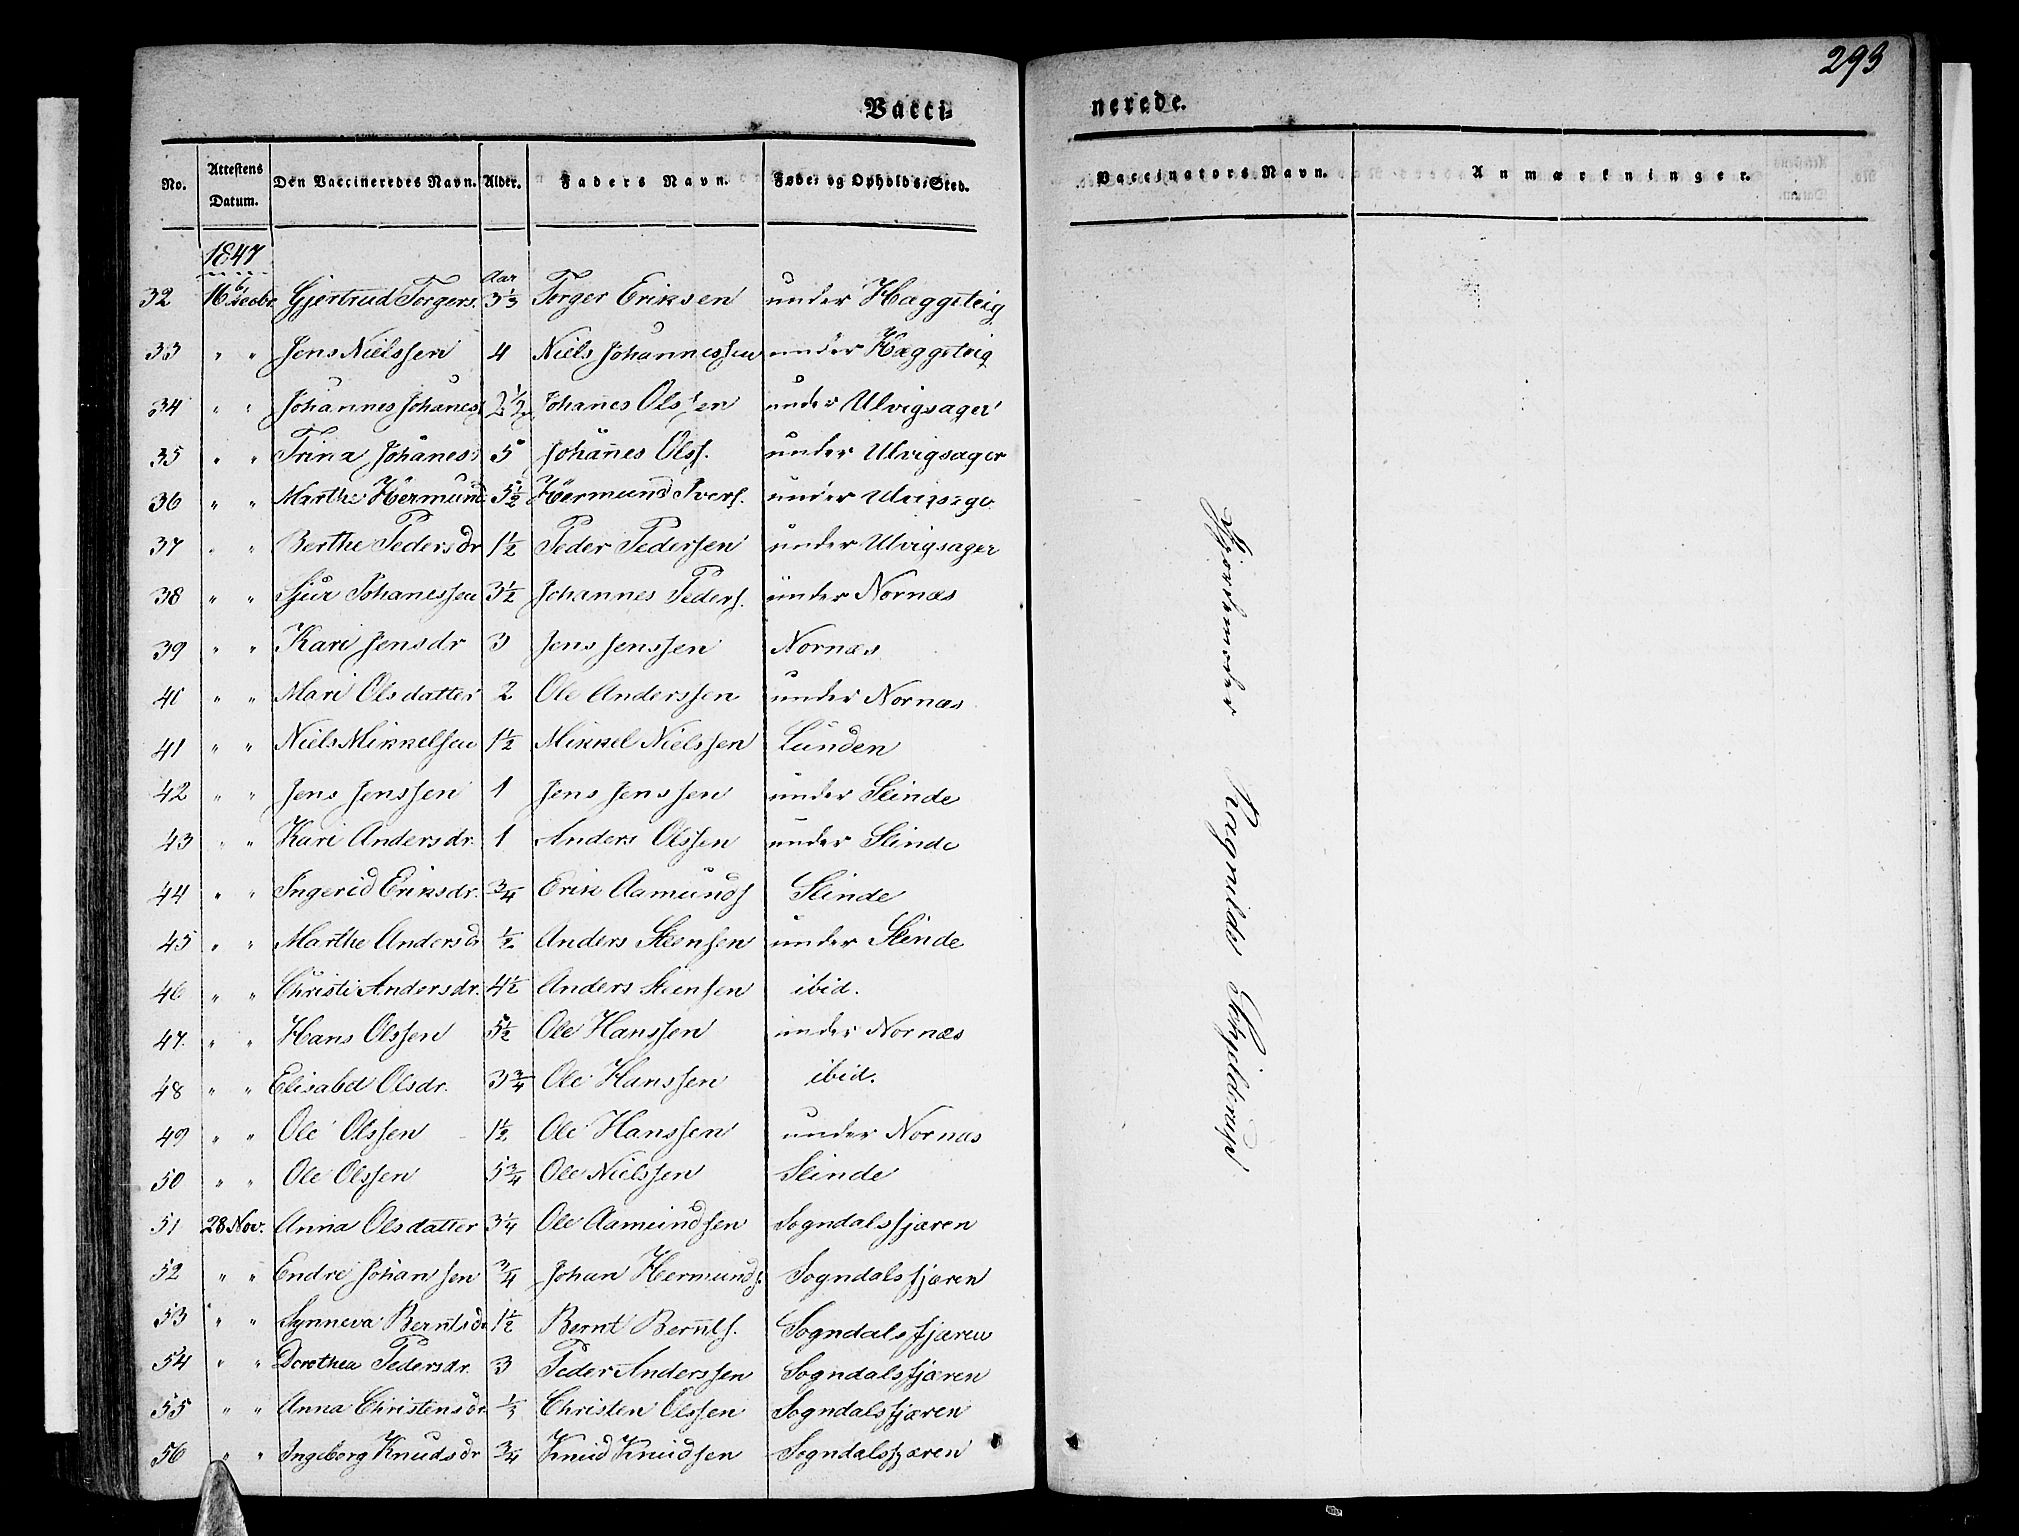 293
Vacci-
nerede.
No. Attestens Datum. Den Vaccineredes Navn. Alder. Faders Navn. Føde- og Opholds-Sted. Vaccinators Navn. Anmærkninger.
1847
Aar
32 16 Gjertrud Torgers. 3⅓ Torger Eriksen under Hæggsteig
33 " " Jens Nielssen 4 Niels Johannessen under Hæggsteig
34 " " Johannes Johanes 2½ Johanes Olssen under Ulvigsager
35 " " Trina Johanes 5 Johanes Olss. under Ulvigsager
36 " " Marthe Hermund 5½ Hermund Ivers. under Ulvigsage
37 " " Berthe Pedersdr 1½ Peder Pedersen under Ulvigsager
38 " " Sjur Johanessen 3½ Johannes Peders. under Nornæs
39 " " Kari Jensdr 3 Jens Jenssen Nornæs
40 " " Mari Olsdatter 2 Ole Anderssen under Nornæs
41 " " Niels Mikkelsen 1½ Mikkel Nielssen Lunden
42 " " Jens Jenssen 1 Jens Jenssen under Slinde
43 " " Kari Andersdr. 1 Anders Olssen under Slinde
44 " " Ingerid Eriksdr. ¾ Erik Aamunds Slinde
45 " " Marthe Andersd ½ Anders Steensen under Slinde
46 " " Christi Andersdr. 4½ Anders Steensen ibid.
47. " " Hans Olssen 5½ Ole Hanssen under Nornæs
48 " " Elisabet Olsdr. 3¾ Ole Hanssen ibid.
49 " " Ole Olssen 1½ Ole Hanssen under Nornæs
50 " " Ole Olssen 5¾ Ole Nielssen Slinde
51 28 Nov. Anna Olsdatter 3¼ Ole Aamundsen Sogndalsfjæren
52 " " Endre Johansen ¾ Johan Hermunds. Sogndalsfjæren
53 " " Synneva Berntsd. 1½ Bernt Bernts. Sogndalsfjæren
54 " " Dorothea Pedersdr. 3 Peder Anderssen Sogndalsfjæren
55 " " Anna Christensdr ⅓ Christen Olssen Sogndalsfjæren
56 " " Ingeborg Knudsdr ¾ Knud Knudsen Sogndalsfjæren
Gjordemoder Ragnilde Schjelderup